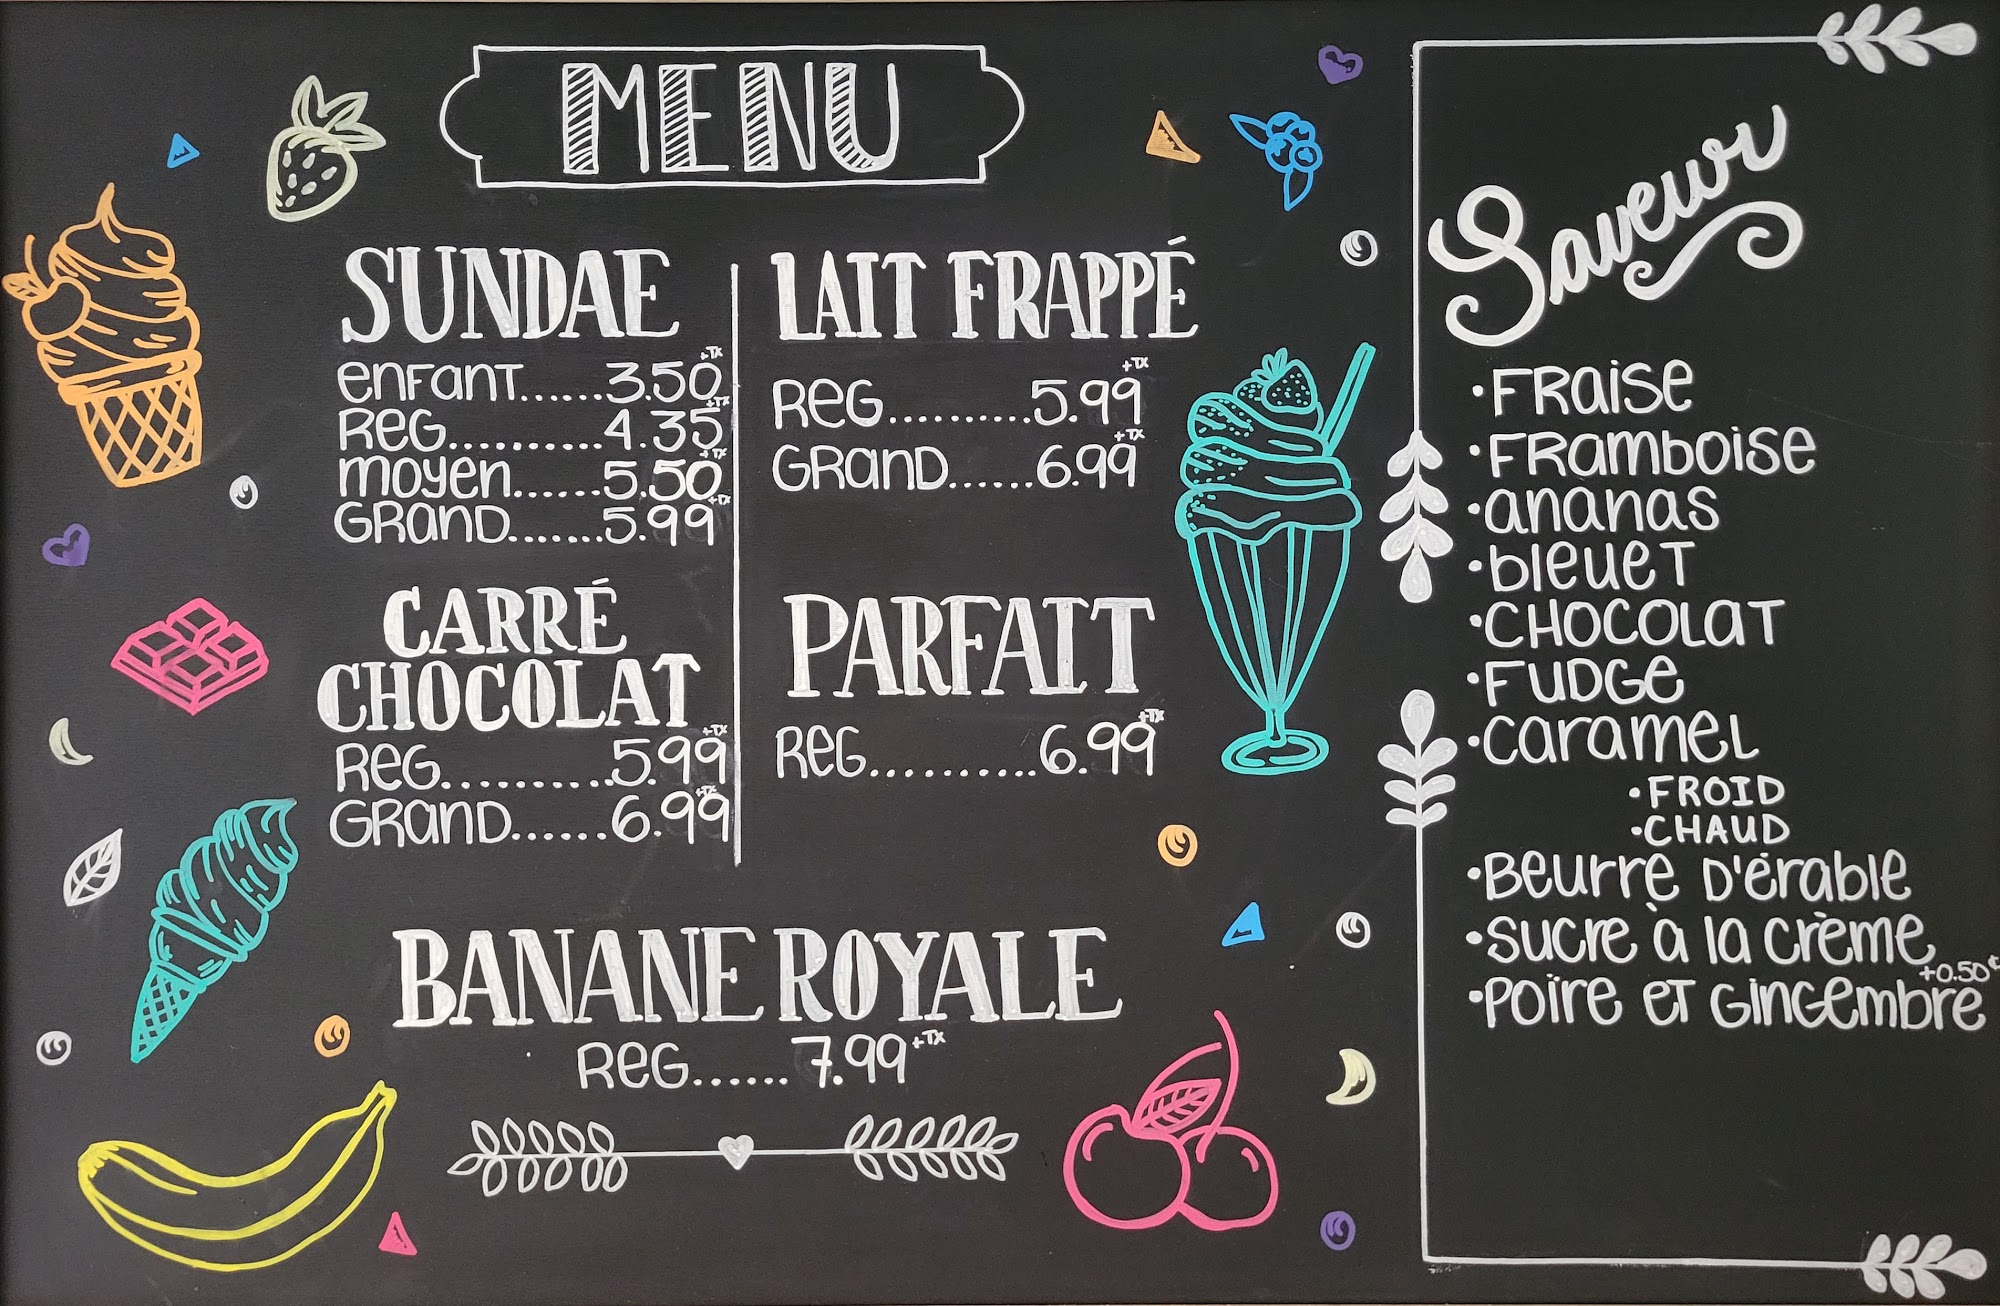 MENU
SUNDAE
enfant......3.50 +TX
REG..........4.35 +TX
moyen......5.50 +TX
GRAND.......5.99 +TX
CARRÉ
CHOCOLAT
REG..........5.99 +TX
GRAND......6.99 +TX
LAIT FRAPPÉ
REG..........5.99 +TX
GRAND......6.99 +TX
PARFAIT
REG..........6.99 +TX
BANANE ROYALE
REG......7.99 +TX
Saveur
•FRAISE
•FRAMBOISE
•ananas
•bleuet
•CHOCOLAT
•FUDGE
•caramel
•FROID
•CHAUD
•Beurre d'érable
•sucre à la crème
+0.50¢
•Poire et Gingembre